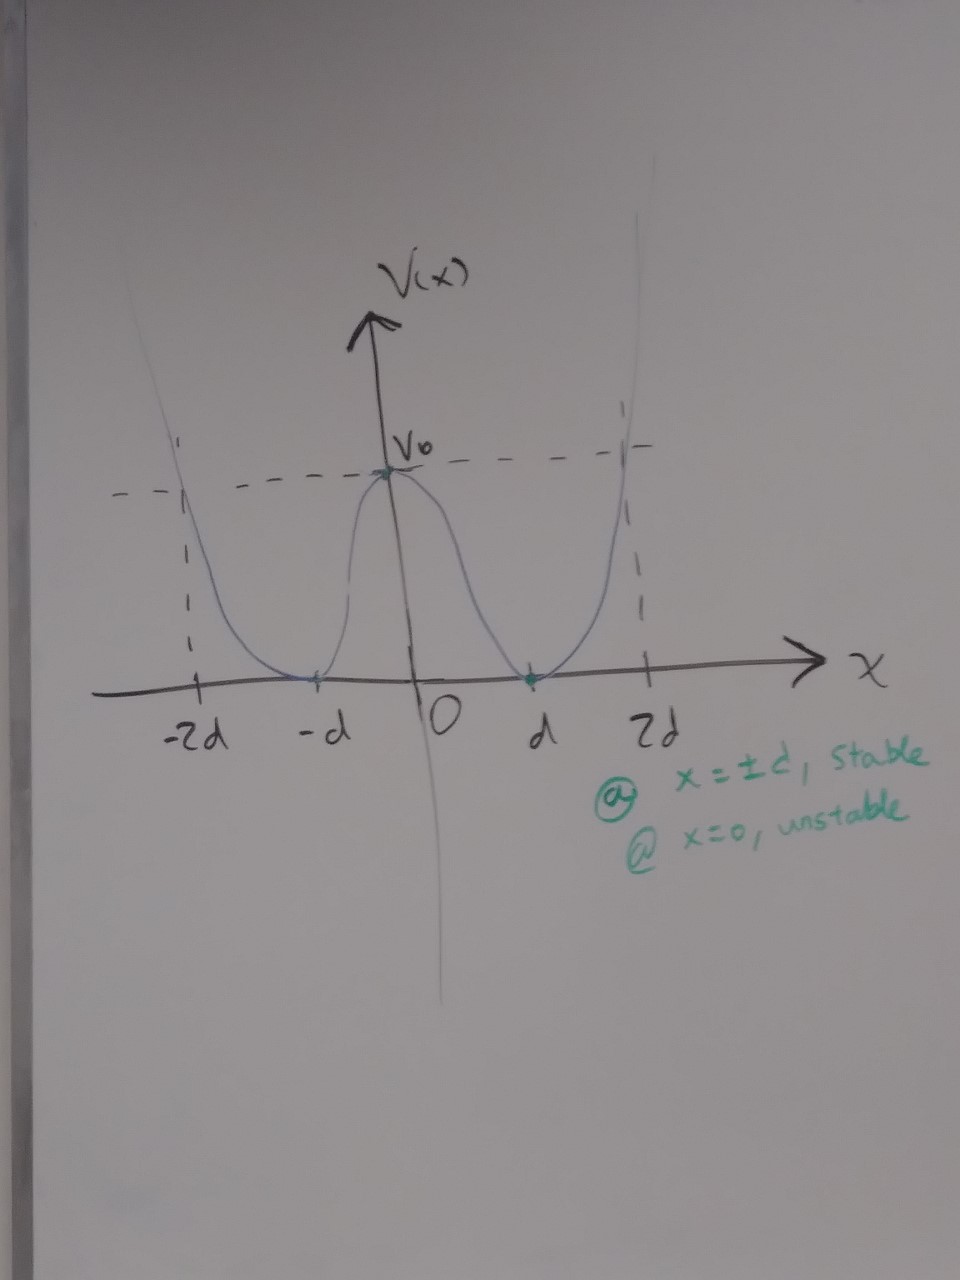 V(x)
V0
x
-2d
-d
0
d
2d
@ x=±d, stable
@ x=0, unstable